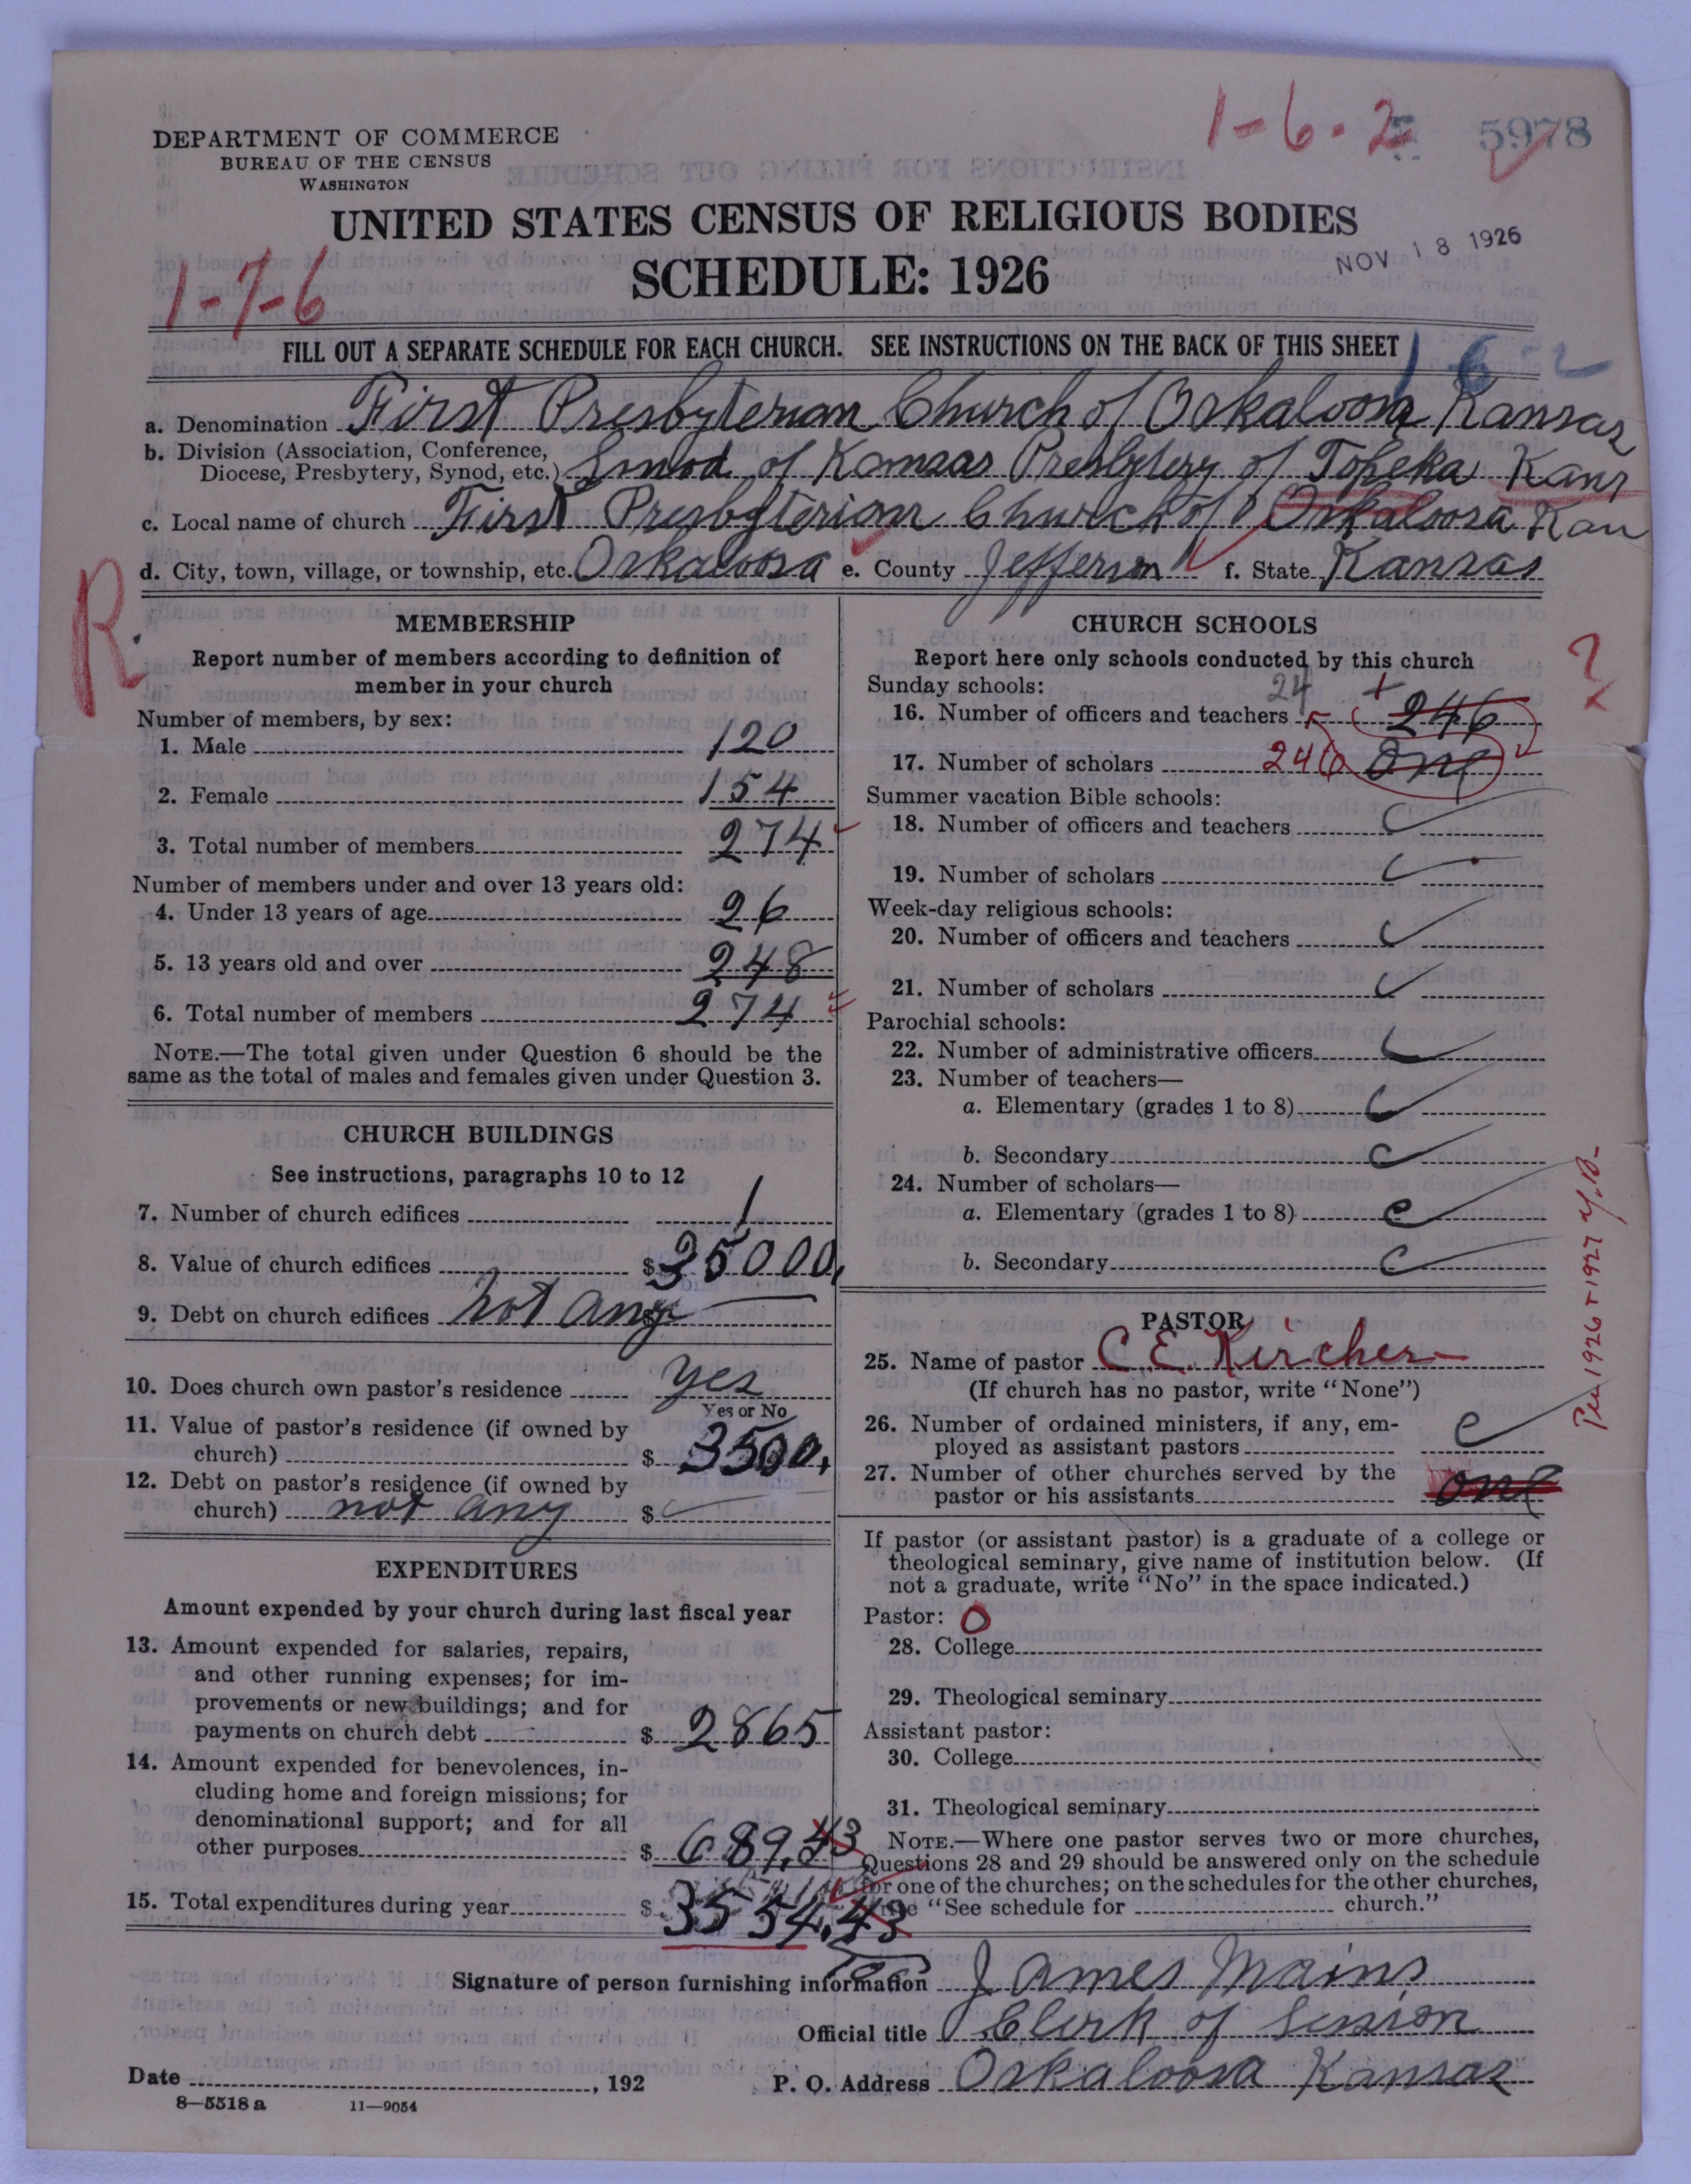 1-6-2
5978
DEPARTMENT OF COMMERCE
BUREAU OF THE CENSUS
WASHINGTON
UNITED STATES CENSUS OF RELIGIOUS BODIES
NOV 18 1926
SCHEDULE: 1926
1-7-6
FILL OUT A SEPARATE SCHEDULE FOR EACH CHURCH. SEE INSTRUCTIONS ON THE BACK OF THIS SHEET
a. Denomination First Presbyterian Church of Oskaloosa Kansas
b. Division (Association, Conference,
Diocese, Presbytery, Synod, etc.) Sinod of Kansas Presbytery of Topeka Kans
c. Local name of church First Presbyterian Church of Oskaloosa Kan
d. City, town, village, or township, etc. Oskaloosa e. County Jefferson f. State Kansas
R.
MEMBERSHIP
Report number of members according to definition of
member in your church
Number of members, by sex:
1. Male 120
2. Female 154
3. Total number of members 274
Number of members under and over 13 years old:
4. Under 13 years of age 26
5. 13 years old and over 248
6. Total number of members 274
NOTE.—The total given under Question 6 should be the
same as the total of males and females given under Question 3.
CHURCH BUILDINGS
See instructions, paragraphs 10 to 12
7. Number of church edifices 1
8. Value of church edifices $35000.
9. Debt on church edifices not any $
10. Does church own pastor's residence yes
Yes or No
11. Value of pastor's residence (if owned by
church) $ 3500.
12. Debt on pastor's residence (if owned by
church) not any $
EXPENDITURES
Amount expended by your church during last fiscal year
13. Amount expended for salaries, repairs,
and other running expenses; for im-
provements or new buildings; and for
payments on church debt $ 2865
14. Amount expended for benevolences, in-
cluding home and foreign missions; for
denominational support; and for all
other purposes $ 689.43
15. Total expenditures during year $ 3554.43
CHURCH SCHOOLS
Report here only schools conducted by this church
Sunday schools: 24
16. Number of officers and teachers 246
17. Number of scholars 246 one
?
Summer vacation Bible schools:
18. Number of officers and teachers
19. Number of scholars
Week-day religious schools:
20. Number of officers and teachers
21. Number of scholars
Parochial schools:
22. Number of administrative officers
23. Number of teachers—
a. Elementary (grades 1 to 8)
b. Secondary
24. Number of scholars—
a. Elementary (grades 1 to 8)
b. Secondary
PASTOR
25. Name of pastor C. E. Kircher
(If church has no pastor, write "None")
26. Number of ordained ministers, if any, em-
ployed as assistant pastors
27. Number of other churches served by the
pastor or his assistants one
Per 1926 & 1927 Y.B.
If pastor (or assistant pastor) is a graduate of a college or
theological seminary, give name of institution below. (If
not a graduate, write "No" in the space indicated.)
Pastor: O
28. College
29. Theological seminary
Assistant pastor:
30. College
31. Theological seminary
NOTE.—Where one pastor serves two or more churches,
Questions 28 and 29 should be answered only on the schedule
for one of the churches; on the schedules for the other churches,
"See schedule for church."
Signature of person furnishing information James Mains
Official title Clerk of Session
Date , 192 P. O. Address Oskaloosa Kansas
8—5518 a 11—9054